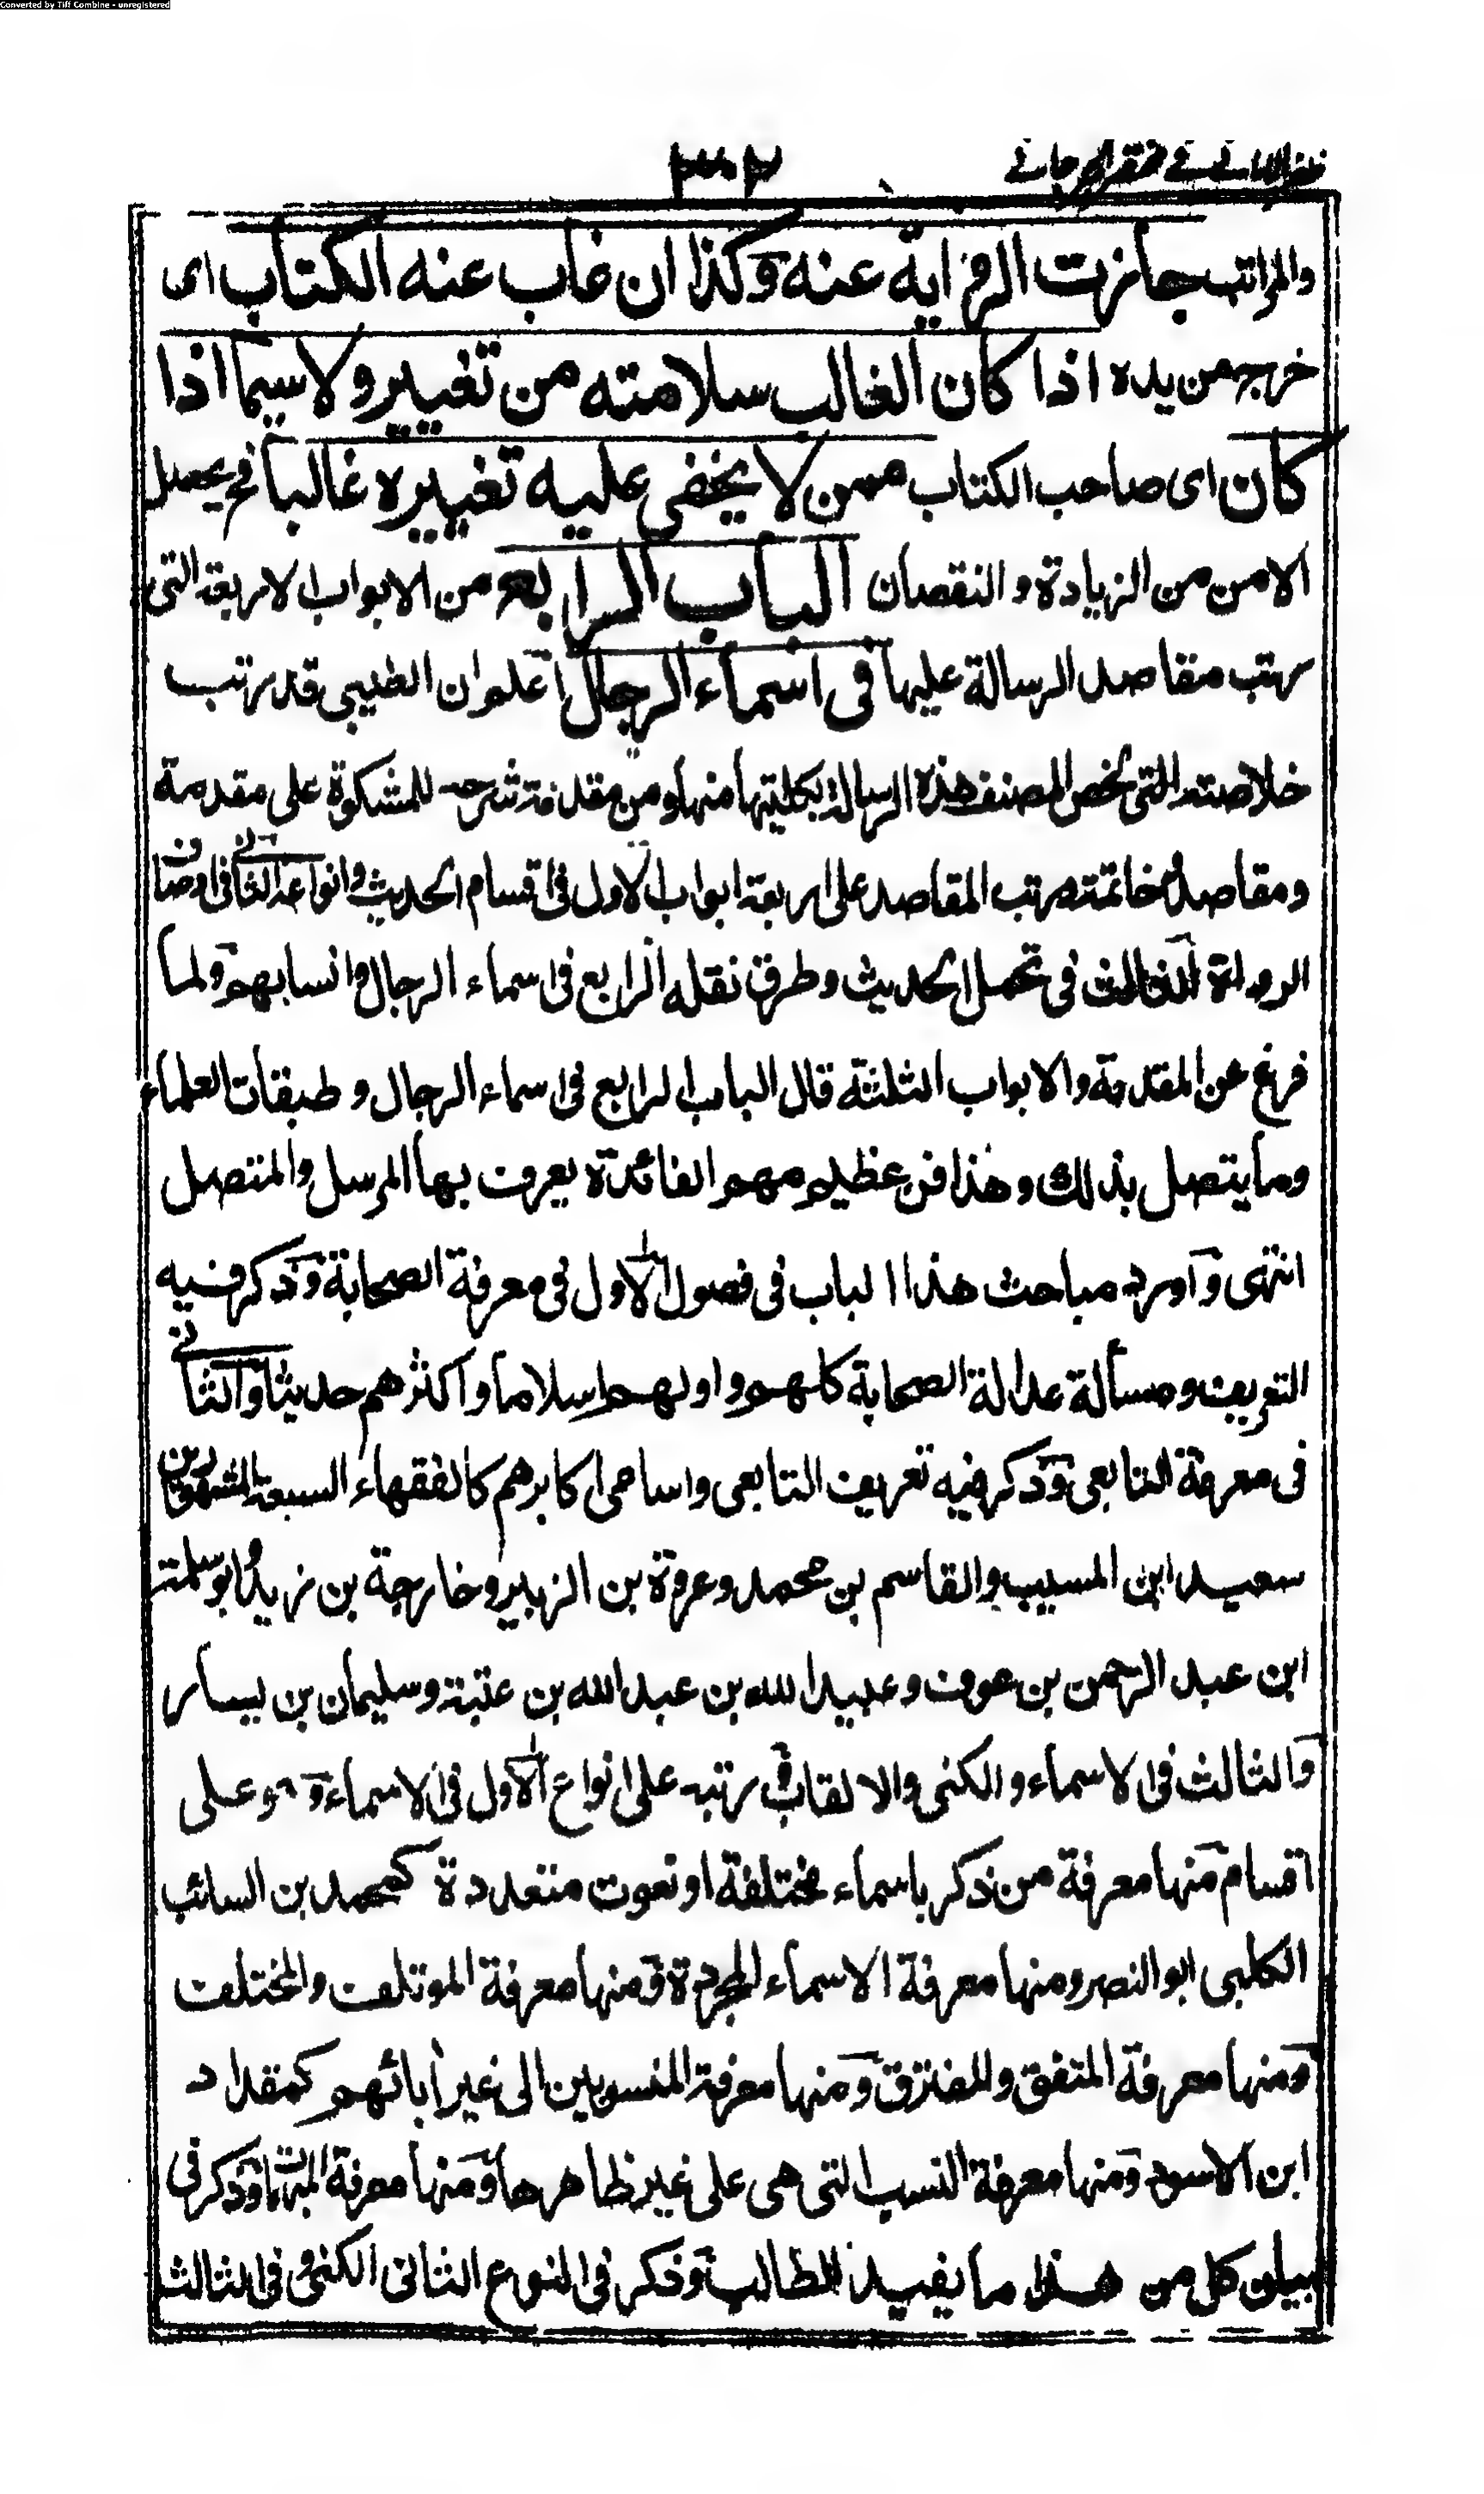 Converted by Tiff Combine - unregistered
ظفر الامانی فی مختصر الجرجانی
٣٠٢
والمراتب جازت الروایة عنه وكذا ان غاب عنه الكتاب ای
خرجہ من یده اذا كان الغالب سلامته من تغییر ولاسیما اذا
كان ای صاحب الكتاب ممن لا یخفی علیه تغییره غالبا فح یحصل
الامن من الزیادة والنقصان الباب الرابع من الابواب الاربعة التی
رتب مقاصد الرسالة علیها فی اسماء الرجال اعلم ان الطیبی قد رتب
خلاصته التی لخص المصنف هذه الرسالة بكلیتها منها ومن مقدمة شرحه للمشكوة علی مقدمة
ومقاصد وخاتمة ورتب المقاصد علی اربعة ابواب الاول فی اقسام الحدیث وانواعه الثانی فی اوصاف
الرواة الثالث فی تحمل الحدیث وطرق نقله الرابع فی اسماء الرجال وانسابهم ولما
فرغ عن المقدمة والابواب الثلثة قال الباب الرابع فی اسماء الرجال وطبقات العلماء
وما یتصل بذلك وهذا فن عظیم مهم الفائدة یعرف بها المرسل والمتصل
انتهی واورد مباحث هذا الباب فی فصول الاول فی معرفة الصحابة وذكر فیه
التعریف ومسألة عدالة الصحابة كلهم واولهم اسلاما واكثرهم حدیثا والثانی
فی معرفة التابعی وذكر فیه تعریف التابعی واسامی اكابرهم كالفقهاء السبعة المشهورین
سعید ابن المسیب والقاسم بن محمد وعروة بن الزبیر وخارجة بن زید وابو سلمة
ابن عبد الرحمن بن عوف وعبید الله بن عبد الله بن عتبة وسلیمان بن یسار
والثالث فی الاسماء والكنی والالقاب ورتبه علی انواع الاول فی الاسماء وهو علی
اقسام منها معرفة من ذكر باسماء مختلفة او نعوت متعددة كمحمد بن السائب
الكلبی ابو النصر ومنها معرفة الاسماء المجردة ومنها معرفة الموتلف والمختلف
ومنها معرفة المتفق والمفترق ومنها معرفة المنسوبین الی غیر آبائهم كمقداد
ابن الاسود ومنها معرفة النسب التی هی علی غیر ظاهرها ومنها معرفة المبهمات وذكر فی
بیان كل من هذا ما یفید الطالب وذكر فی النوع الثانی الكنی وفی الثالث